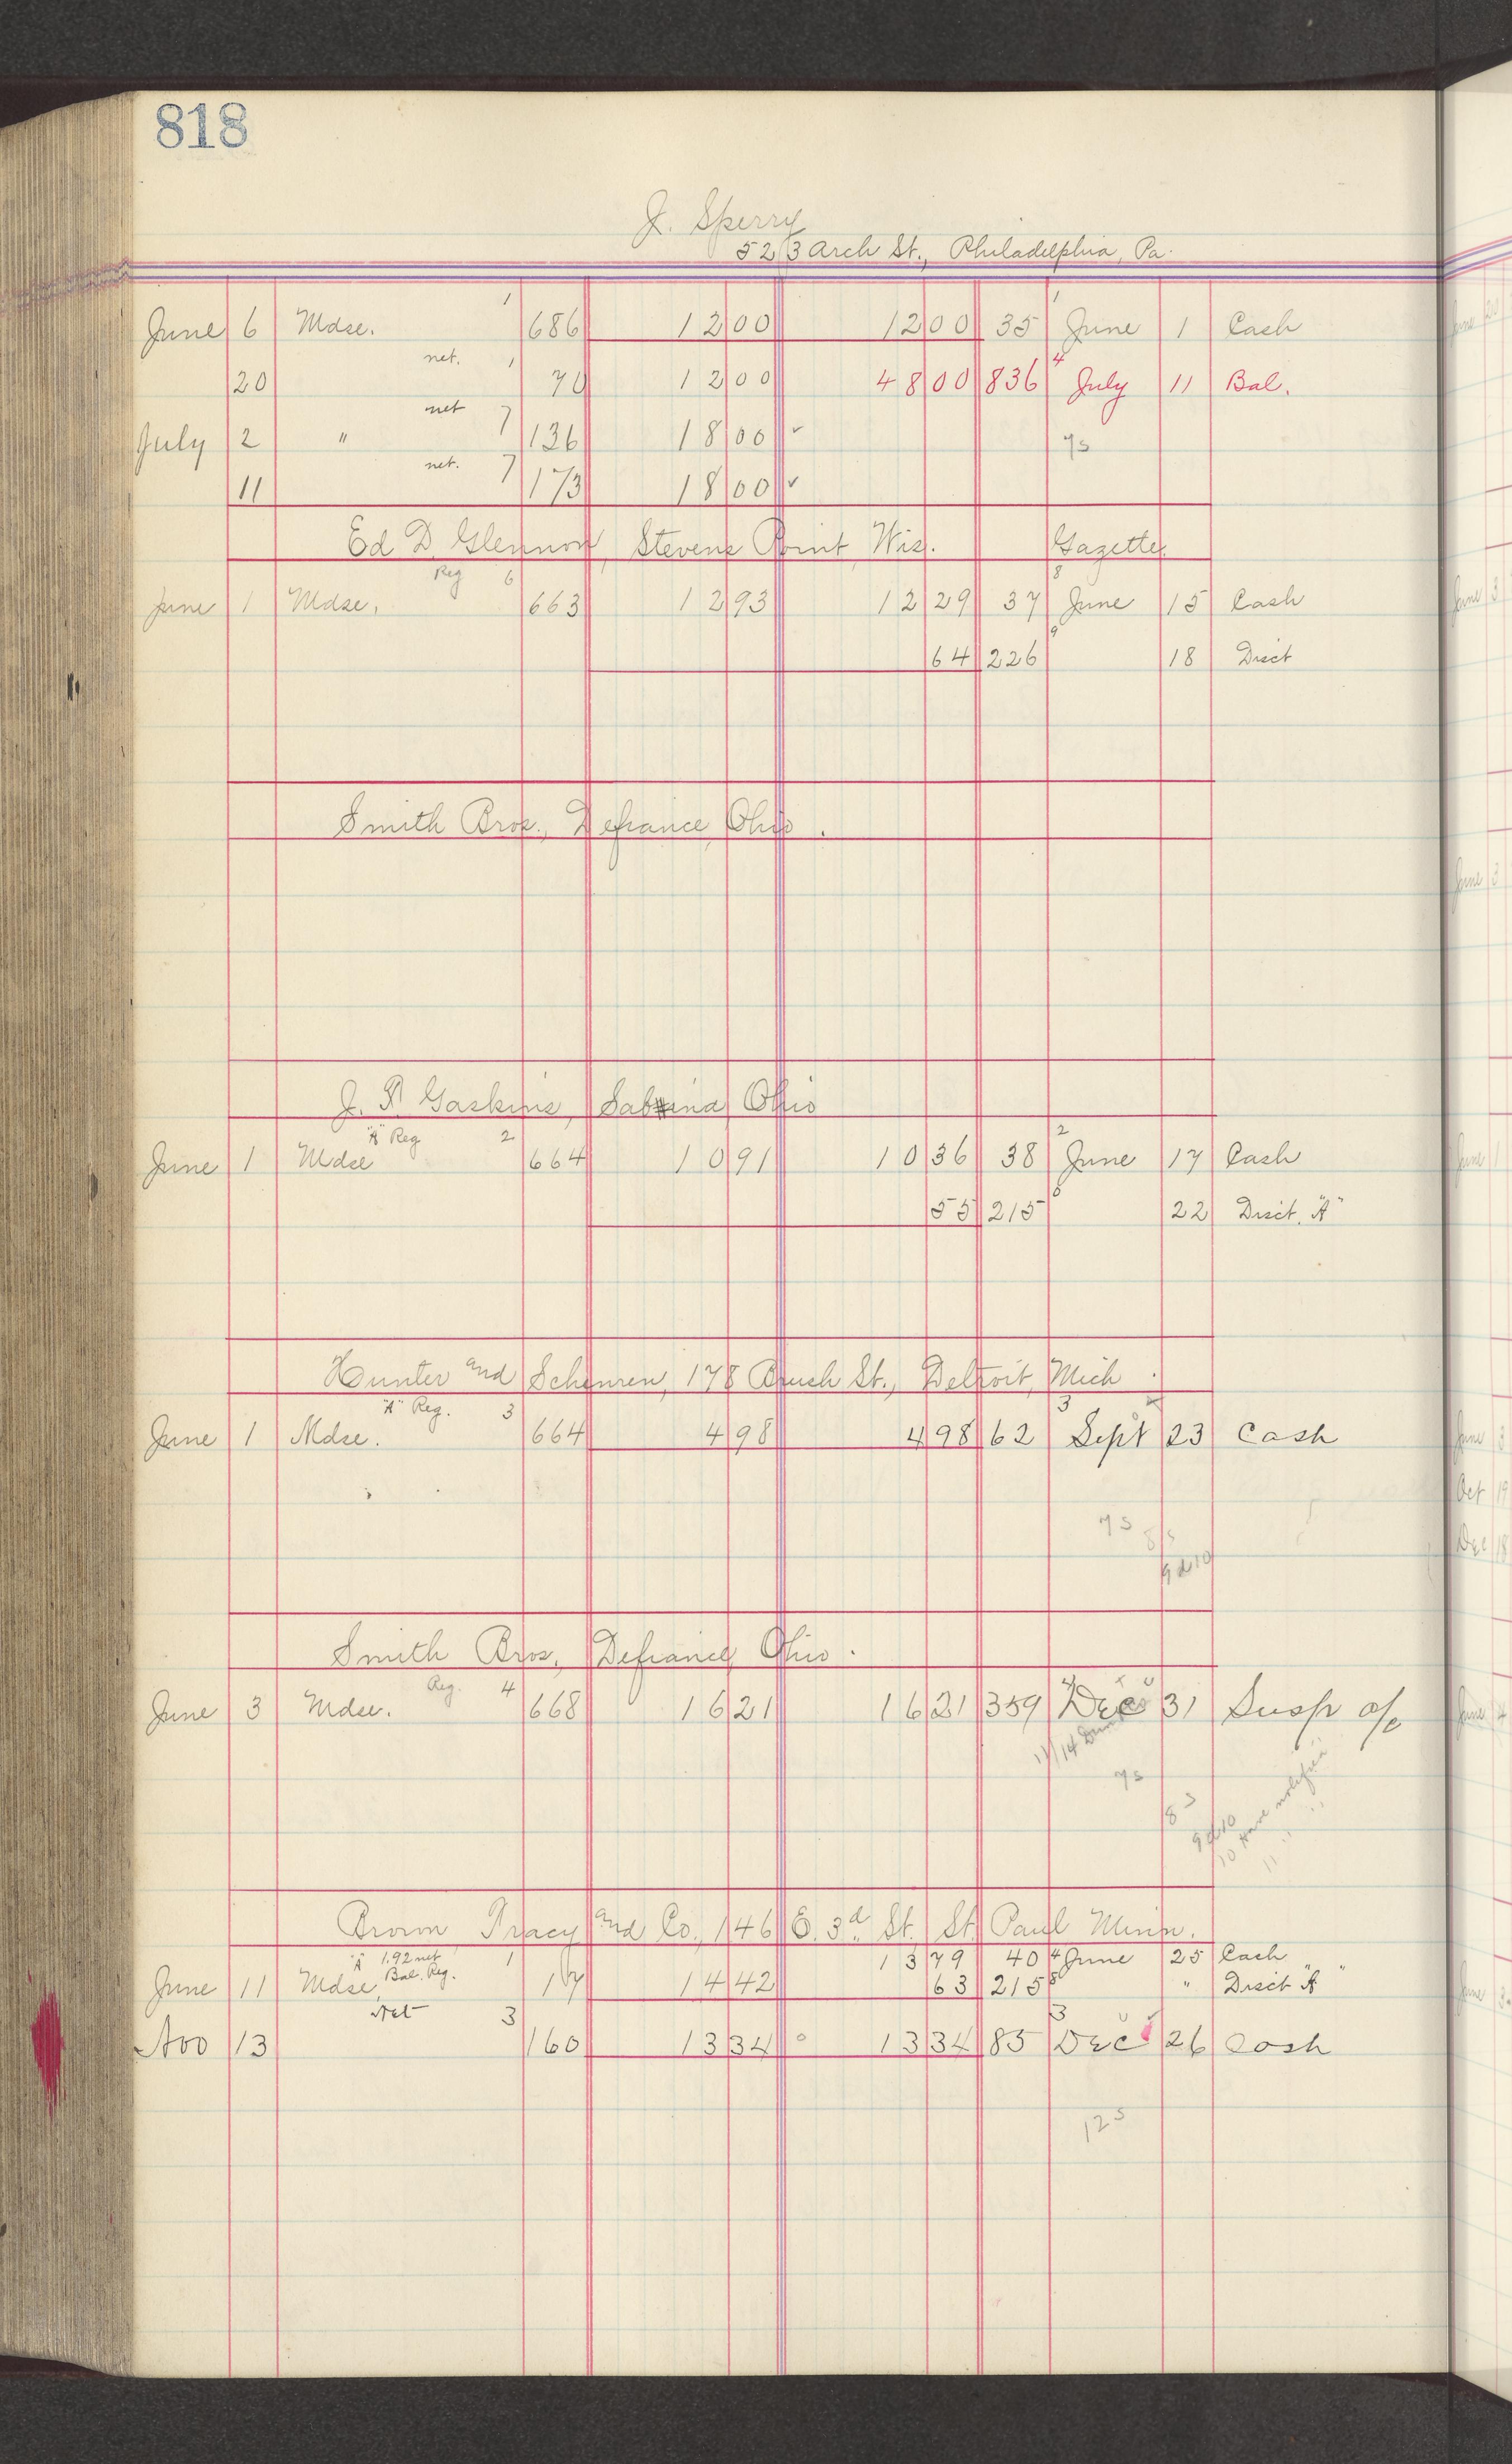 818
J. Sperry
523 Arch St., Philadelphia, Pa.
June 6 Mdse. 1 686 12 00 12 00 35 1 June 1 Cash
20 net. 1 70 12 00 48 00 836 4 July 11 Bal.
July 2 " net 7 136 18 00 ✓ 7s
11 net. 7 173 18 00 ✓
Ed D. Glennon, Stevens Point, Wis. Gazette.
June 1 Mdse. Reg 6 663 12 93 12 29 37 8 June 15 Cash
64 226 9 18 Disct
Smith Bros., Defiance, Ohio.
J. P. Gaskins, Sabina, Ohio
June 1 Mdse "A" Reg 2 664 10 91 10 36 38 2 June 17 Cash
55 215 8 22 Disct. "A"
Hunter and Schenren, 178 Brush St., Detroit, Mich.
June 1 Mdse. "A" Reg. 3 664 4 98 4 98 62 3 Sept 23 Cash
7s
8s
9d10
Smith Bros., Defiance, Ohio.
June 3 Mdse. Reg. 4 668 16 21 16 21 359 Dec 31 Susp a/c
11/14
7s
8s
9d10
10 Have notified
11 " "
Brown Tracy and Co., 146 E. 3d St. St. Paul Minn.
"A" 1.92 net 1 13 79 40 4 June 25 Cash
June 11 Mdse, Bal. Reg. 17 14 42 63 215 8 " Disct "A"
Nov 13 Net 3 160 13 34 13 34 85 3 Dec 26 Cash
12s
June
June 3
June 3
June 1
June 3
Oct 19
Dec 18
June 4
June 3